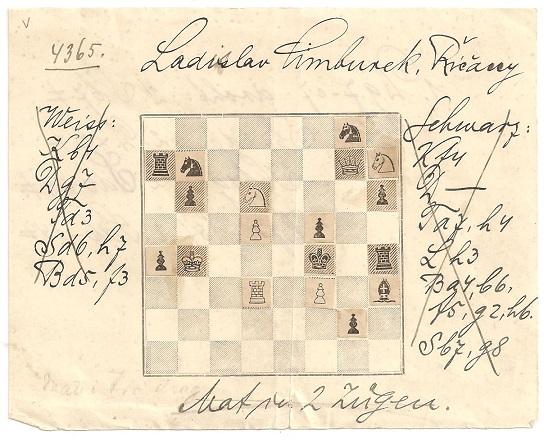 v
4365.
Ladislav Cimburek, Říčany
Weiss:
Kb4
Dg7
Td3
Sd6, h7
Bd5, f3
Schwarz:
Kf4
D —
Ta7, h4
Lh3
Ba4, b6,
f5, g2, h6.
Sb7, g8
Mat in 2 Zügen.